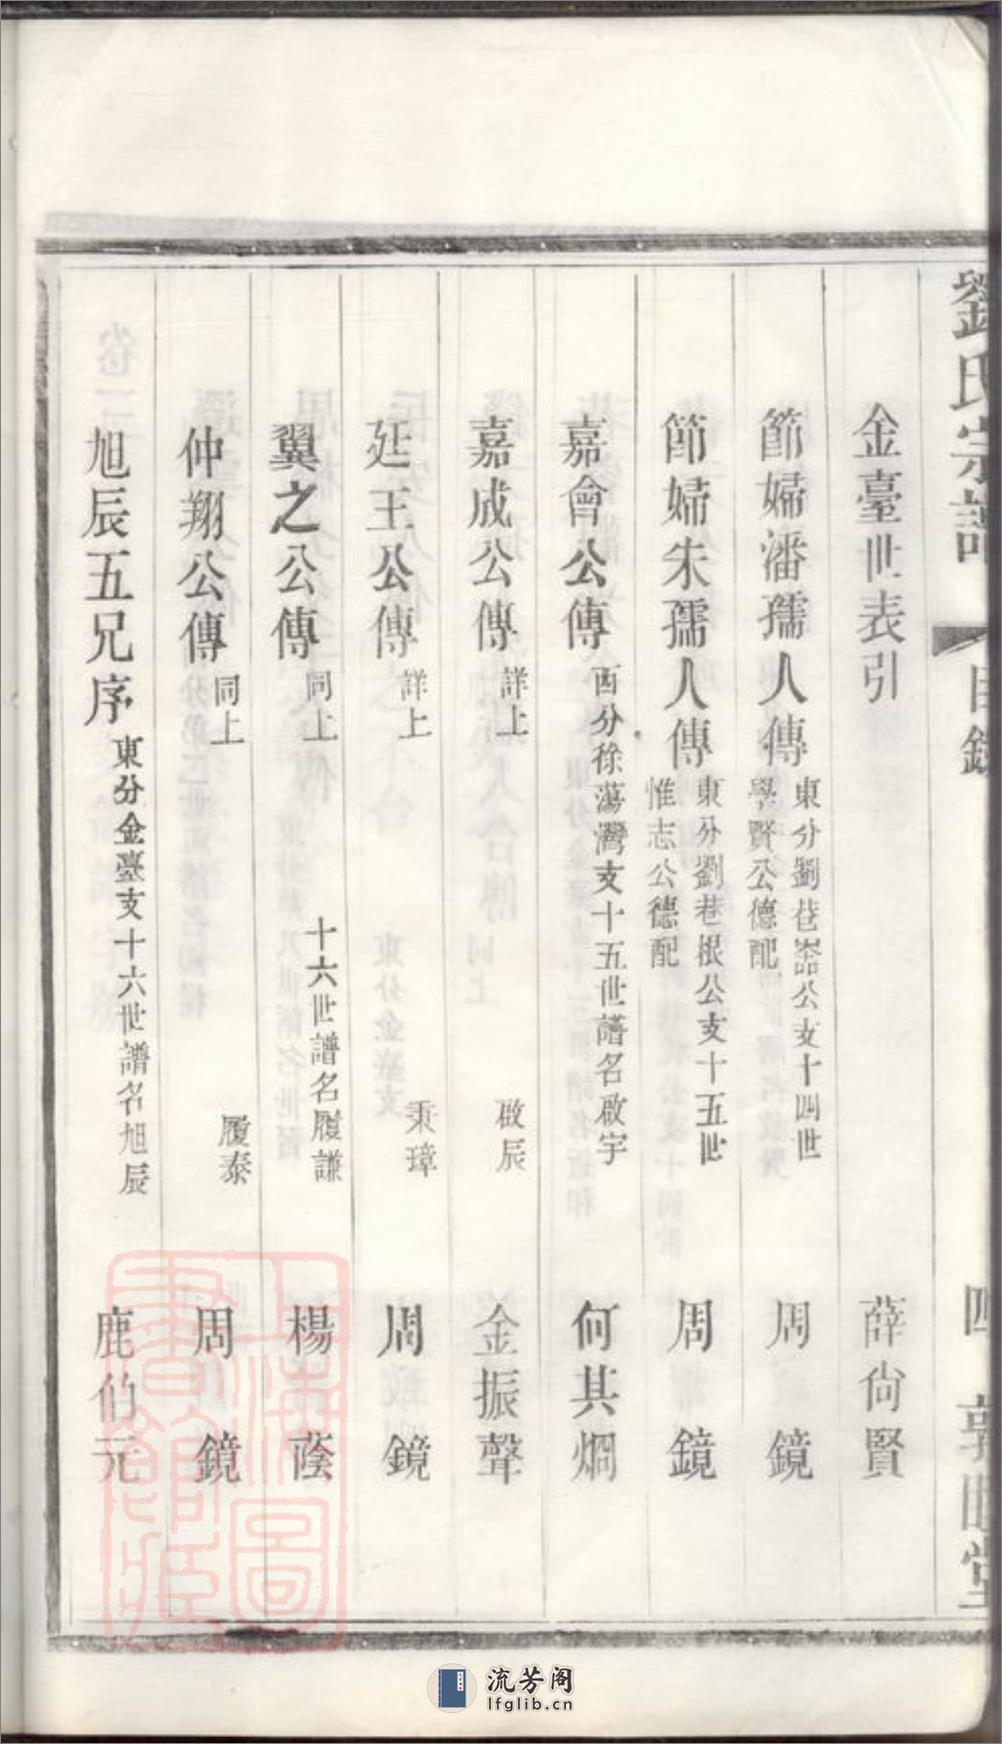 劉氏宗譜
目錄
四
敦睦堂
金臺世表引 薛尙賢
節婦潘孺人傳 東分劉巷崙公支十四世 學賢公德配 周鏡
節婦朱孺人傳 東分劉巷根公支十五世 惟志公德配 周鏡
嘉會公傳 西分徐蕩灣支十五世譜名啟宇 何其烱
嘉成公傳 詳上 啟辰 金振聲
廷王公傳 詳上 秉璋 周鏡
翼之公傳 同上 十六世譜名履謙 楊蔭
仲翔公傳 同上 履泰 周鏡
旭辰五兄序 東分金臺支十六世譜名旭辰 鹿伯元
上海圖書館藏
流芳阁
lfglib.cn